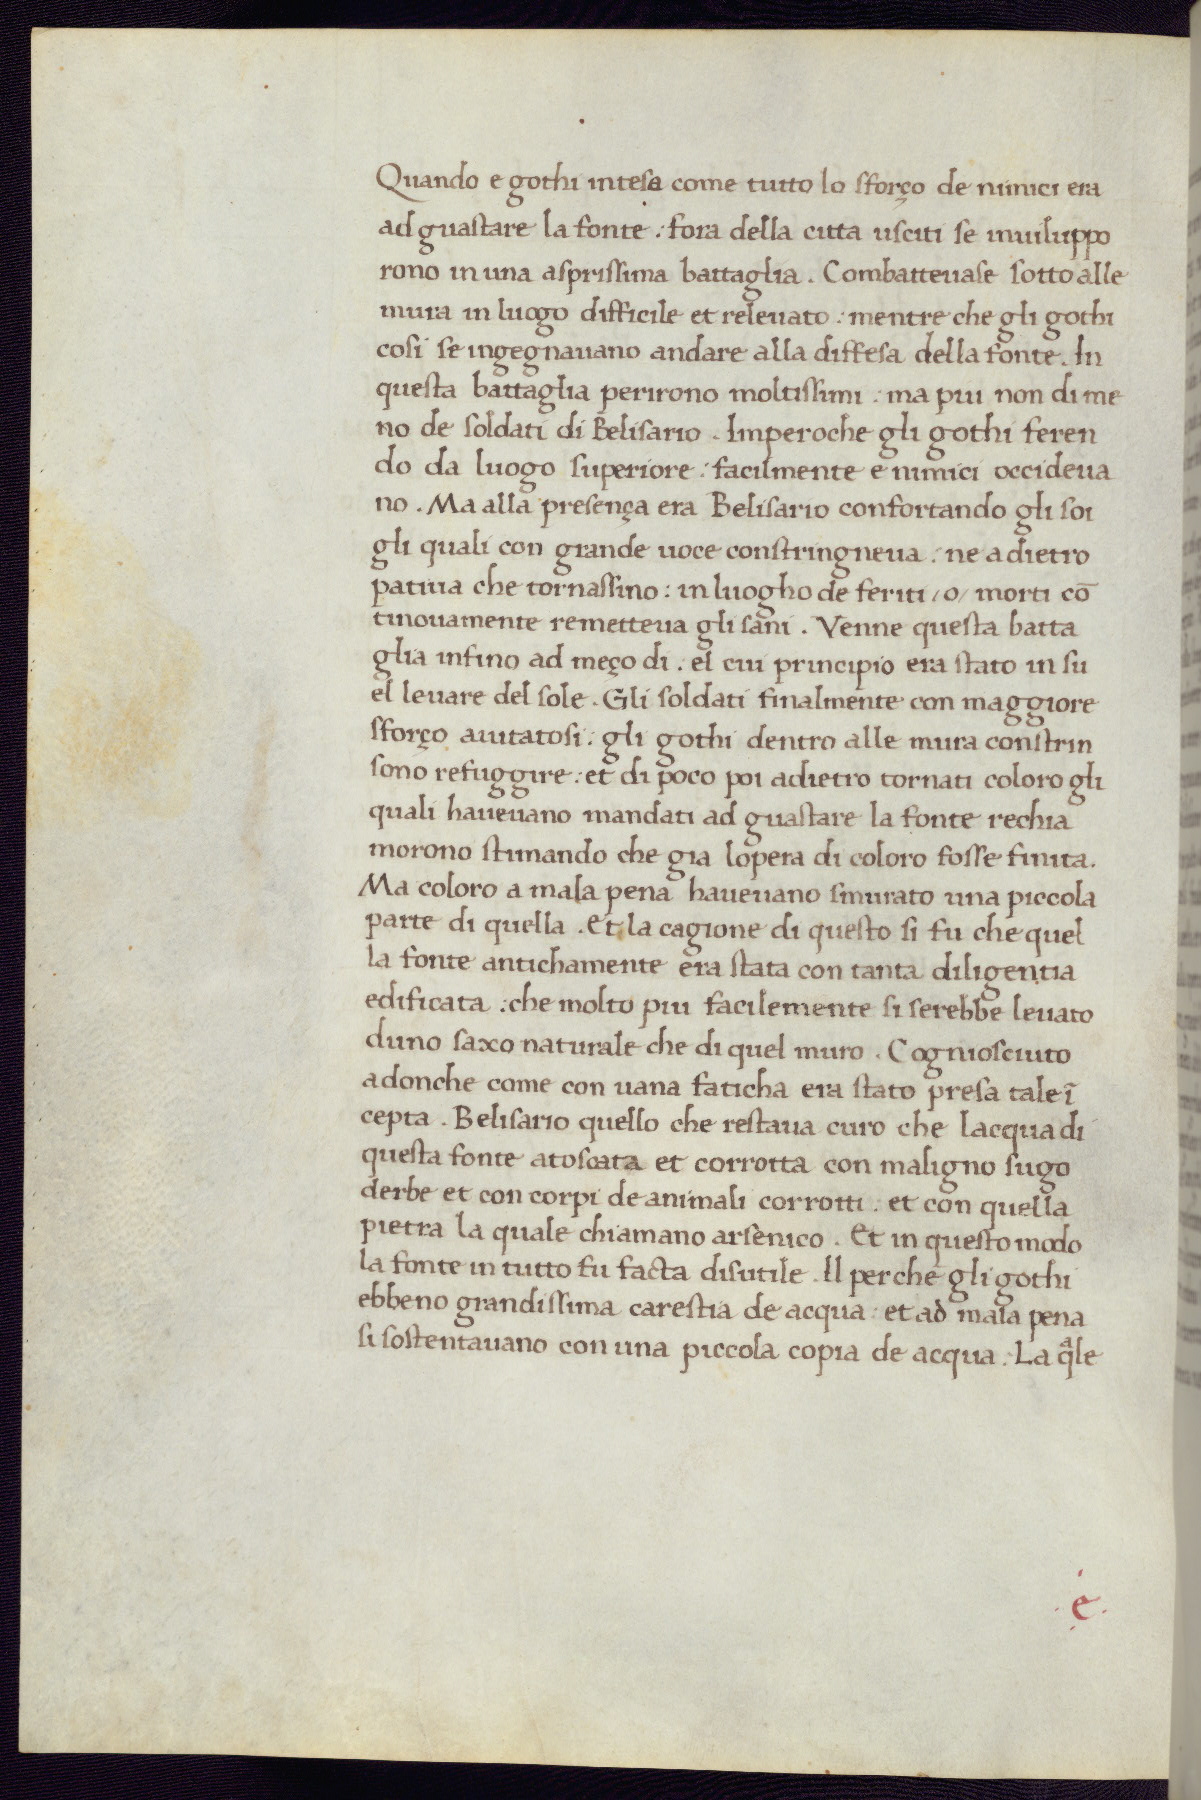 Quando e gothi intesa come tutto lo sforço de nimici era
ad guastare la fonte : fora della citta usciti se inuiluppo
rono in una asprissima battaglia . Combatteuase sotto alle
mura in luogo difficile et releuato : mentre che gli gothi
cosi se ingegnauano andare alla diffesa della fonte . In
questa battaglia perirono moltissimi : ma piu non di me
no de soldati di Belisario . Imperoche gli gothi feren
do da luogo superiore : facilmente e nimici occideua
no . Ma alla presença era Belisario confortando gli soi
gli quali con grande uoce constringneua : ne adietro
patiua che tornassino : in luogho de feriti /o/ morti cō
tinouamente remetteua gli sani . Venne questa batta
glia infino ad meço di . el cui principio era stato in su
el leuare del sole . Gli soldati finalmente con maggiore
sforço aiutatosi : gli gothi dentro alle mura constrin
sono refuggire : et di poco poi adietro tornati coloro gli
quali haueuano mandati ad guastare la fonte rechia
morono stimando che gia lopera di coloro fosse finita .
Ma coloro a mala pena haueuano smurato una piccola
parte di quella . Et la cagione di questo si fu che quel
la fonte antichamente era stata con tanta diligentia
edificata : che molto piu facilemente si serebbe leuato
duno saxo naturale che di quel muro . Cogniosciuto
adonche come con uana faticha era stato presa tale ī
cepta . Belisario quello che restaua curo che lacqua di
questa fonte atoscata et corrotta con maligno sugo
derbe et con corpi de animali corrotti : et con quella
pietra la quale chiamano arsenico . Et in questo modo
la fonte in tutto fu facta disutile . Il perche gli gothi
ebbeno grandissima carestia de acqua : et ad mala pena
si sostentauano con una piccola copia de acqua : La qͣle
· e ·